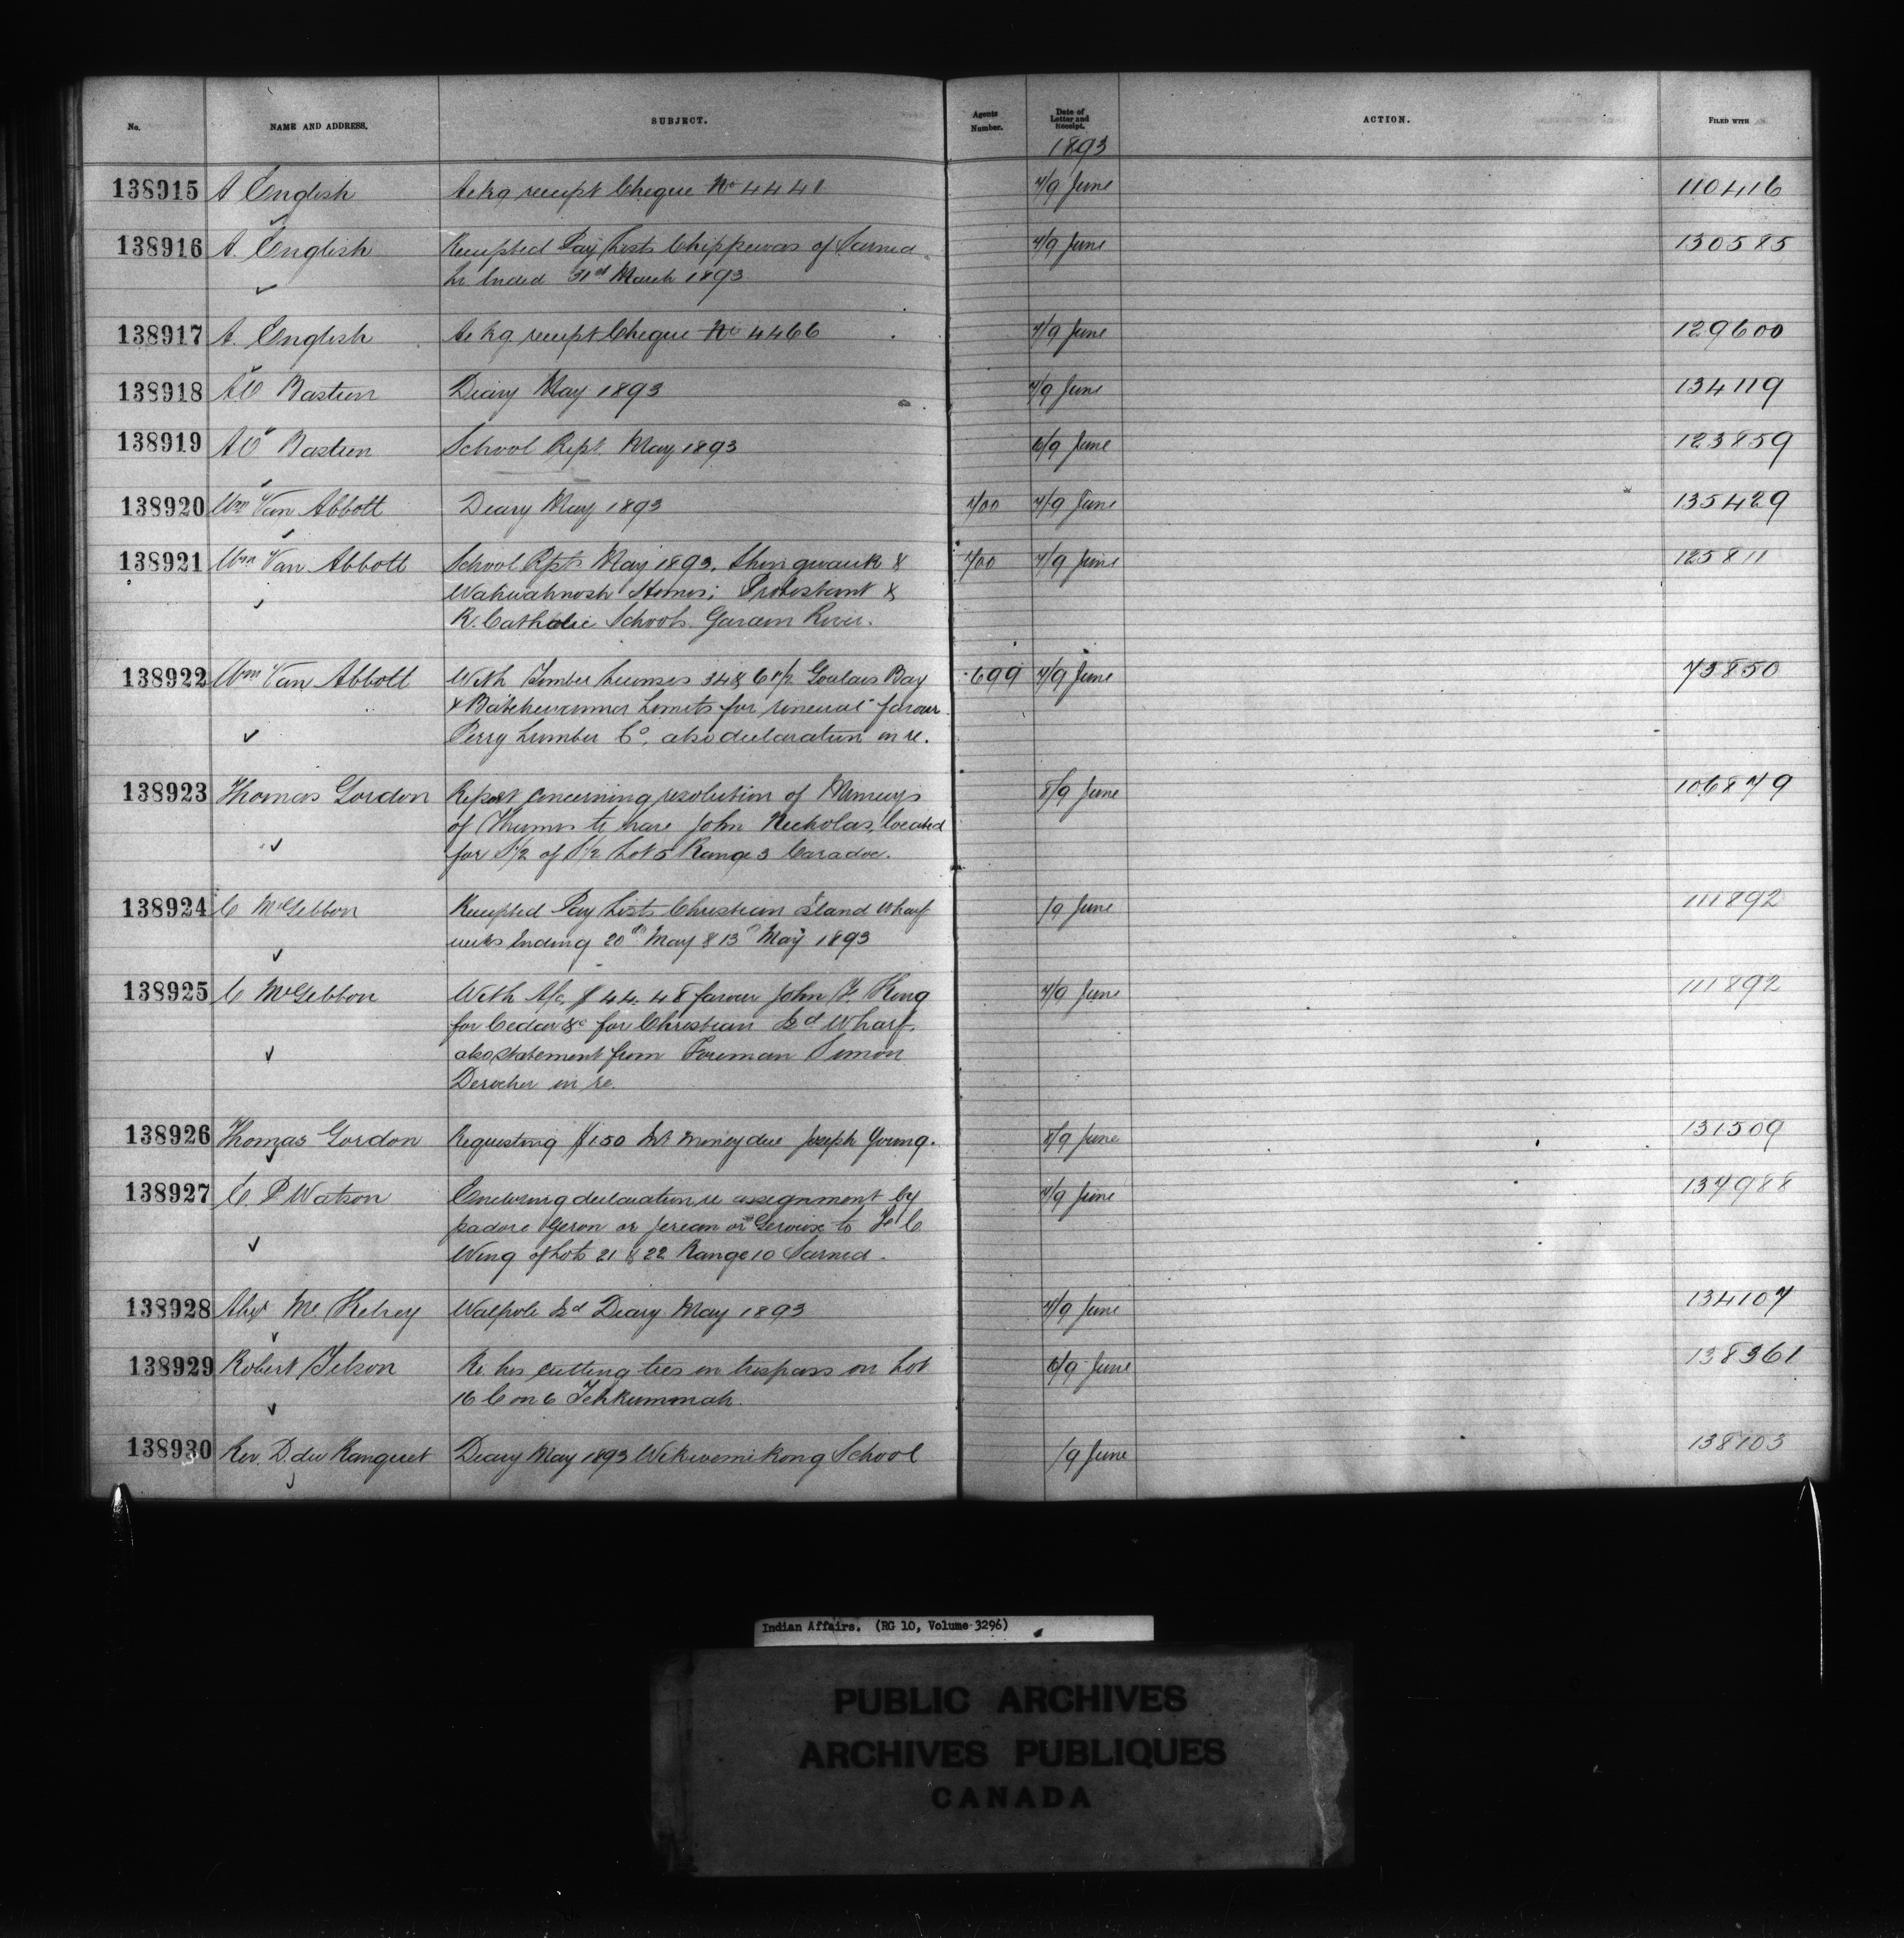 No. NAME AND ADDRESS. SUBJECT. Agents Number. Date of Letter and Receipt. ACTION. FILED WITH
1893
138915 A English Ackg receipt Cheque No 4441 7/9 June 110416
138916 A. English Receipted Pay Lists Chippewas of Sarnia 7/9 June 130585
Ended 31st March 1893
138917 A. English Ackg receipt Cheque No 4466 7/9 June 129600
138918 AO Bastien Diary May 1893 7/9 June 134119
138919 AO Bastien School Rept. May 1893 6/9 June 123859
138920 Wm Van Abbott Diary May 1893 700 7/9 June 135429
138921 Wm Van Abbott School Rpts May 1893. Shingwauk & 700 7/9 June 125811
Wahwahnosh Homes; Protestant &
R. Catholic Schools Garden River.
138922 Wm Van Abbott With Timber Licenses Goulais Bay 699 7/9 June 73850
& Batchewanna Limits for renewal favour
Perry Lumber Co. also declaration in re.
138923 Thomas Gordon Report concerning resolution of Munceys 8/9 June 106879
of Thames to have John Nicholas, located
for S½ of S½ Lot 5 Range 3 Caradoc.
138924 C McGibbon Receipted Pay Lists Christian Island Wharf /9 June 111892
weeks Ending 20th May & 13th May 1893
138925 C McGibbon With A/c, $44.48 favour John F. King 7/9 June 111892
for Cedar &c for Christian Isd Wharf
also statement from Foreman Simon
Derocher in re.
138926 Thomas Gordon Requesting $150 Int money due Joseph Young. 8/9 June 131509
138927 C. P Watson Enclosing declaration re assignment by 7/9 June 137988
Isadore Geron or Jerean or Gervais to
Wing of Lots 21 & 22 Range 10 Sarnia.
138928 Alexr Mc. Kelvey Walpole Isd Diary May 1893 7/9 June 134107
138929 Robert Jelson Re his cutting ties in trespass on Lot 6/9 June 138361
16 Con 6 Tehkummah.
138930 Rev. D. du Ranquet Diary May 1893 Wikwemikong School /9 June 138103
Indian Affairs. (RG 10, Volume 3296)
PUBLIC ARCHIVES
ARCHIVES PUBLIQUES
CANADA